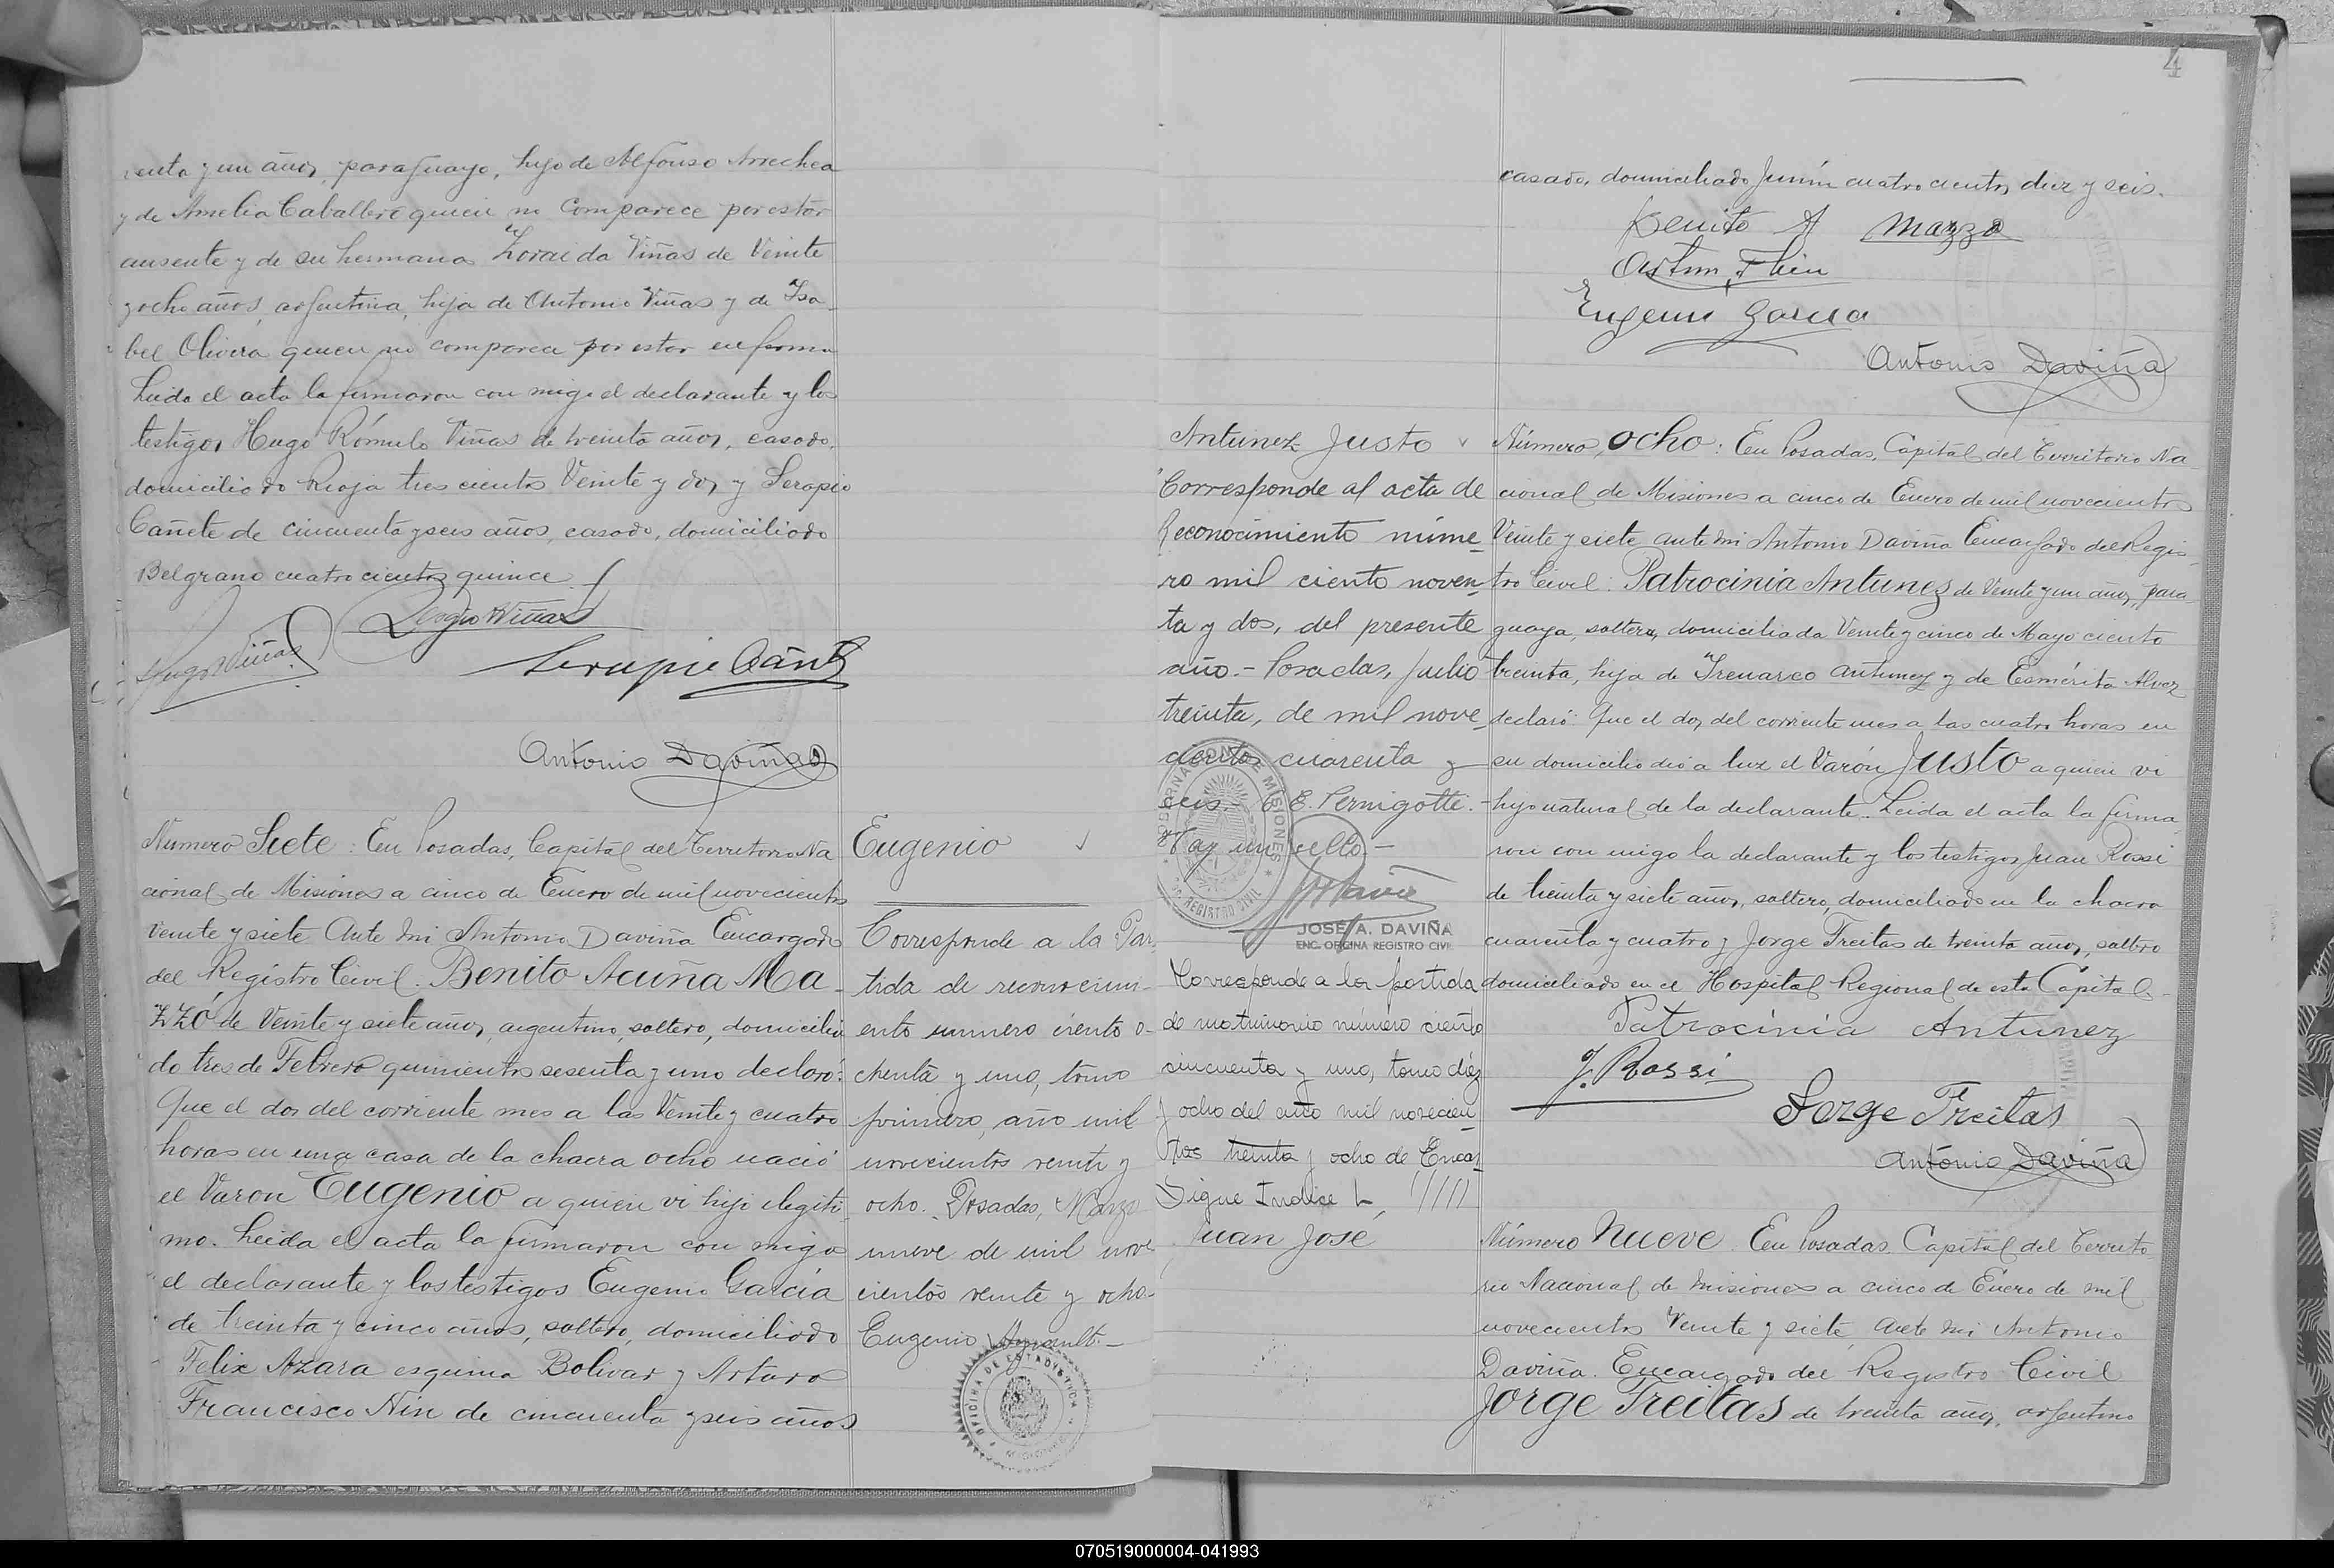 renta y un años, paraguayo, hijo de Alfonso Arrechea
y de Amelia Caballero quien no comparece por estar
ausente y de su hermana Zoraida Viñas de Veinte
y ocho años, argentina, hija de Antonio Viñas y de Isa-
bel Olivera quien no comparece por estar enferma
Leida el acta la firmaron con migo el declarante y los
testigos Hugo Rómulo Viñas de treinta años, casado,
domiciliado Rioja tres cientos Veinte y dos y Serapio
Cañete de cincuenta y seis años, casado, domiciliado
Belgrano cuatro cientos quince
Sergio Viñas
Hugo Viñas
Serapio Cañete
Antonio Daviña
Numero Siete: En Posadas, Capital del Territorio Na
cional de Misiones a cinco de Enero de mil novecientos
Veinte y siete Ante Mi Antonio Daviña Encargado
del Registro Civil. Benito Acuña Ma-
zzó de Veinte y siete años, argentino, soltero, domicilia
do tres de Febrero quinientos sesenta y uno declaró:
Que el dos del corriente mes a las Veinte y cuatro
horas en una casa de la chacra ocho nació
el Varon Eugenio a quien vi hijo ilegiti-
mo. Leida el acta la firmaron con migo
el declarante y los testigos Eugenio Garcia
de treinta y cinco años, soltero, domiciliado
Felix Azara esquina Bolivar y Arturo
Francisco Nin de cincuenta y seis años
Eugenio
Corresponde a la Par-
tida de reconocimi-
ento numero ciento o-
chenta y uno, tomo
primero, año mil
novecientos veinte y
ocho. Posadas, Marzo
nueve de mil nove
cientos veinte y ocho-
Eugenio
OFICINA DE ESTADISTICA
4
casado, domiciliado Junin cuatro cientos diez y seis.
Benito A Mazzo
Eugenio Garcia
Antonio Daviña
Antunez Justo
Corresponde al acta de
Reconocimiento núme-
ro mil ciento noven-
ta y dos, del presente
año.- Posadas, Julio
treinta, de mil nove-
cientos cuarenta y
seis. E. Pernigotti.-
Hay un sello.-
GOBERNACION DE MISIONES
REGISTRO CIVIL
JOSE A. DAVIÑA
ENC. OFICINA REGISTRO CIVIL
Corresponde a la partida
de matrimonio número ciento
cincuenta y uno, tomo diéz
y ocho del año mil novecien
tos treinta y ocho de Encar
Sigue Indice L,
Juan José
Número, ocho: En Posadas, Capital del Territorio Na-
cional de Misiones a cinco de Enero de mil novecientos
Veinte y siete ante Mi Antonio Daviña Encargado del Regis-
tro Civil: Patrocinia Antunez de Veinte y un años, para-
guaya, soltera, domiciliada Veinte y cinco de Mayo ciento
treinta, hija de Irenarco Antunez y de Esmérita Alvez
declaró: Que el dos del corriente mes a las cuatro horas en
su domicilio dió a luz el Varón Justo a quien vi
hijo natural de la declarante. Leida el acta la firma-
ron con migo la declarante y los testigos Juan Rossi
de treinta y siete años, soltero, domiciliado en la chacra
cuarenta y cuatro y Jorge Freitas de treinta años, soltero
domiciliado en el Hospital Regional de esta Capital-
Patrocinia Antunez
J. Rossi
Jorge Freitas
Antonio Daviña
Número Nueve En Posadas, Capital del Territo-
rio Nacional de Misiones a cinco de Enero de mil
novecientos Veinte y siete, Ante Mi Antonio
Daviña. Encargado del Registro Civil
Jorge Freitas de treinta años, argentino
070519000004-041993